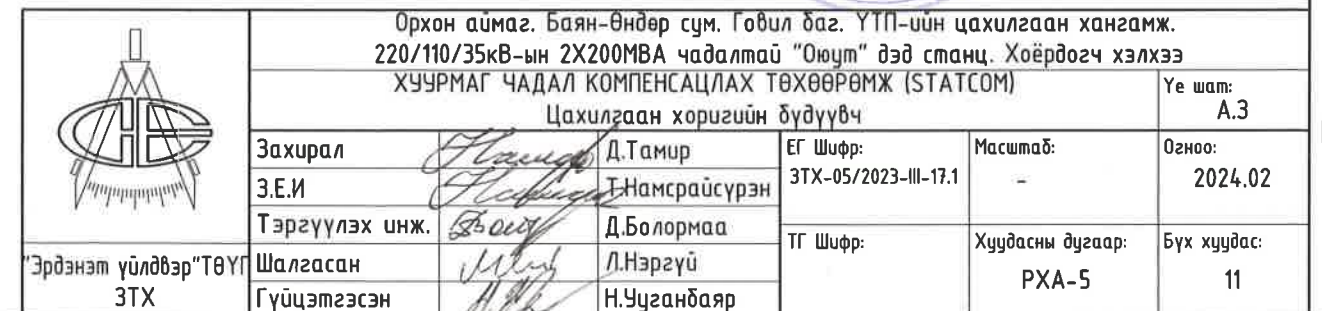 Орхон аймаг. Баян-Өндөр сум. Говил баг. ҮТП-ийн цахилгаан хангамж.
220/110/35кВ-ын 2Х200МВА чадалтай "Оюут" дэд станц. Хоёрдогч хэлхээ
ХУУРМАГ ЧАДАЛ КОМПЕНСАЦЛАХ ТӨХӨӨРӨМЖ (STATCOM)
Цахилгаан хоригийн бүдүүвч
Үе шат:
А.3
Захирал Д.Тамир
З.Е.И Т.Намсрайсүрэн
Тэргүүлэх инж. Д.Болормаа
Шалгасан Л.Нэргүй
Гүйцэтгэсэн Н.Ууганбаяр
ЕГ Шифр:
ЗТХ-05/2023-III-17.1
Масштаб:
-
Огноо:
2024.02
ТГ Шифр:
Хуудасны дугаар:
РХА-5
Бүх хуудас:
11
"Эрдэнэт үйлдвэр"ТӨҮГ
ЗТХ